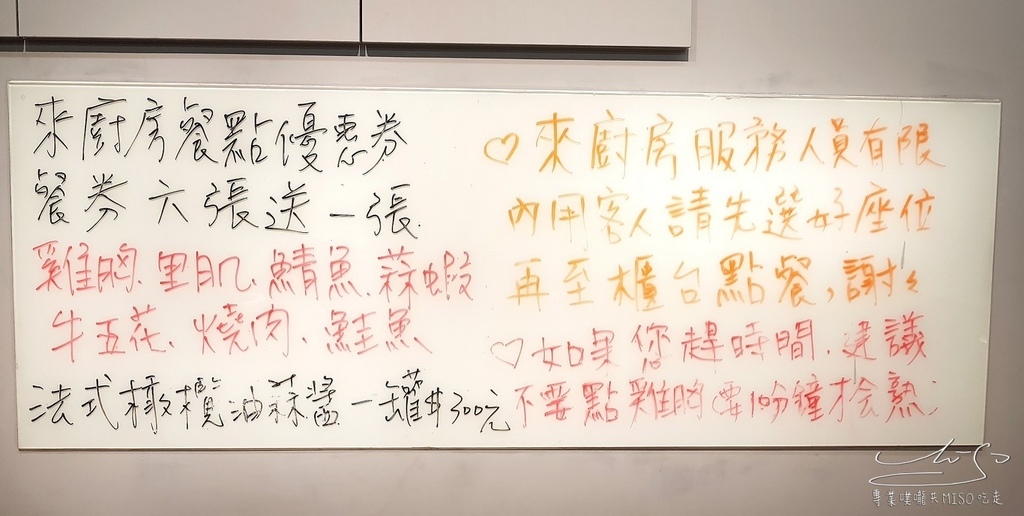 來廚房餐點優惠券
餐券六張送一張.
雞胸.里肌.鯖魚.蒜蝦
牛五花.燒肉.鮭魚
法式橄欖油蒜醬一罐$300元
♡來廚房服務人員有限
內用客人請先選好座位
再至櫃台點餐,謝々
♡如果您趕時間.建議
不要點雞胸(要10分鐘才會熟)
專業噗嚨共MISO吃走